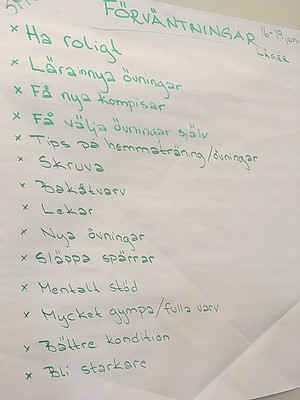 FÖRVÄNTNINGAR 16-19 juni
LÄGER
× Ha roligt
× Lära innya övningar
× Få nya kompisar
× Få välja övningar själv
× Tips på hemmaträning/övningar
× Skruva
× Bakåtvarv
× Lekar
× Nya övningar
× Släppa spärrar
× Mentalt stöd
× Mycket gympa/fulla varv
× Bättre kondition
× Bli starkare